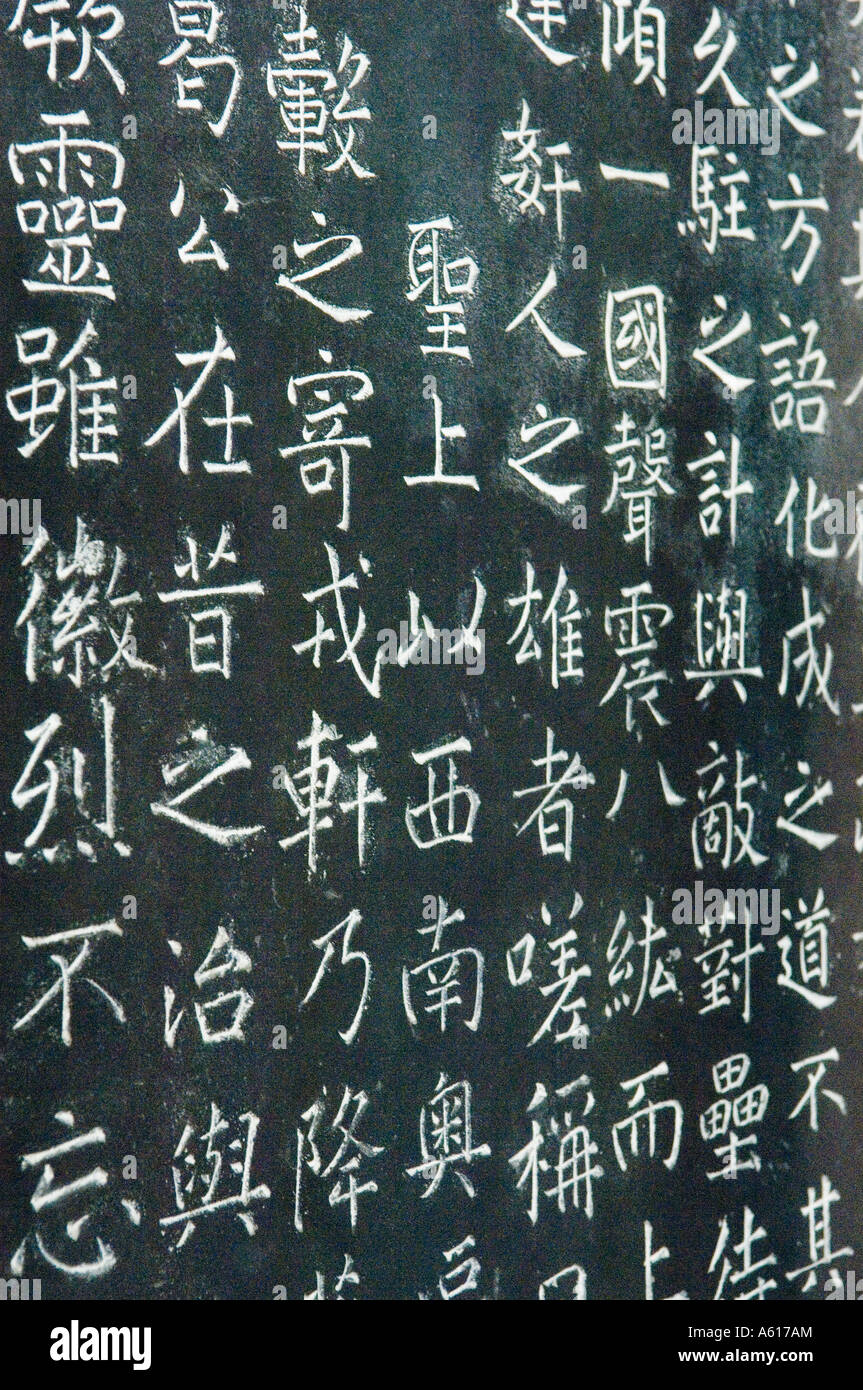 之方語化成之道不其
久駐之計與敵對壘待
傾一國聲震八紘而上
達奸人之雄者嗟稱
聖上以西南奧
轂之寄戎軒乃降
葛公在昔之治與
厥靈雖徽烈不忘
alamy
Image ID: A617AM
www.alamy.com